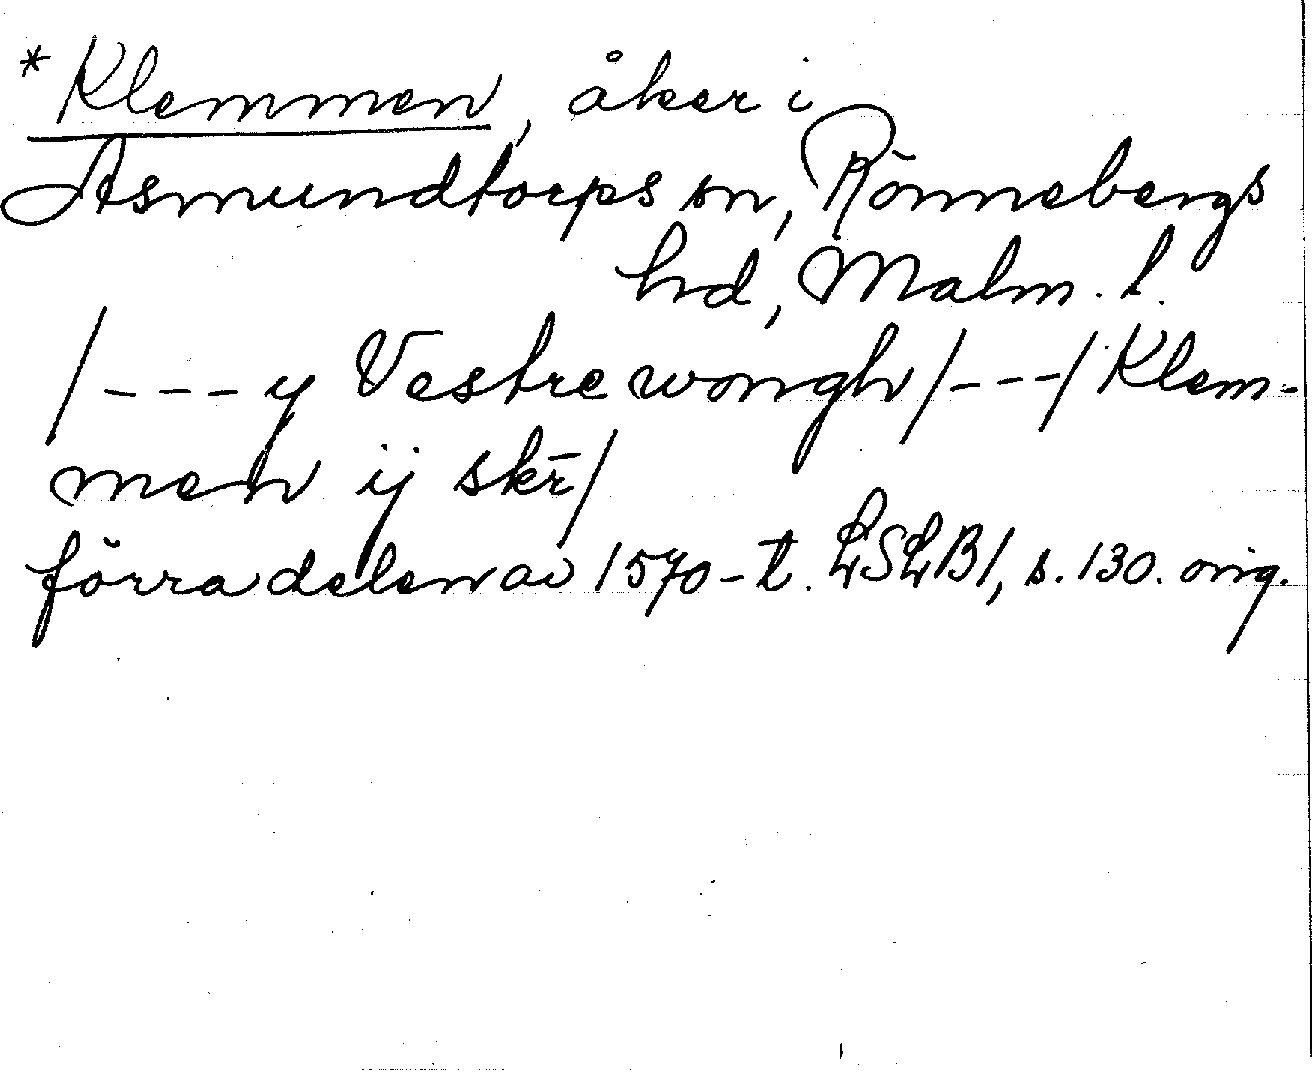 *Klemmen, åker i
Asmundtorps sn, Rönnebergs
hd, Malm. l.
/---y Vestre wongh/---/Klem-
men ij skr̄/
förra delen av 1570-t. LSLB1, s. 130. orig.